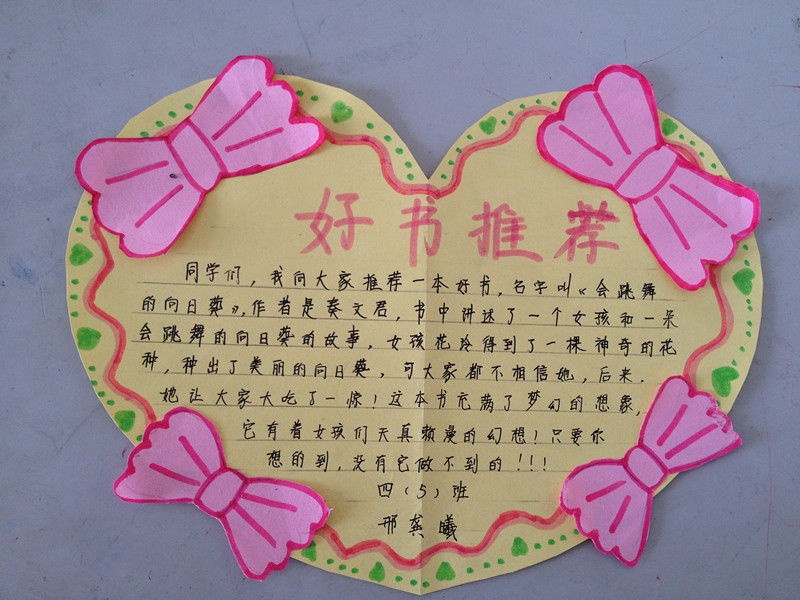 好书推荐
同学们，我向大家推荐一本好书，名字叫《会跳舞
的向日葵》，作者是秦文君，书中讲述了一个女孩和一朵
会跳舞的向日葵的故事，女孩花玲得到了一棵神奇的花
种，种出了美丽的向日葵，可大家都不相信她，后来．
她让大家大吃了一惊！这本书充满了梦幻的想象，
它有着女孩们天真濑漫的幻想！只要你
想的到，没有它做不到的！！！
四（5）班
邢龚曦